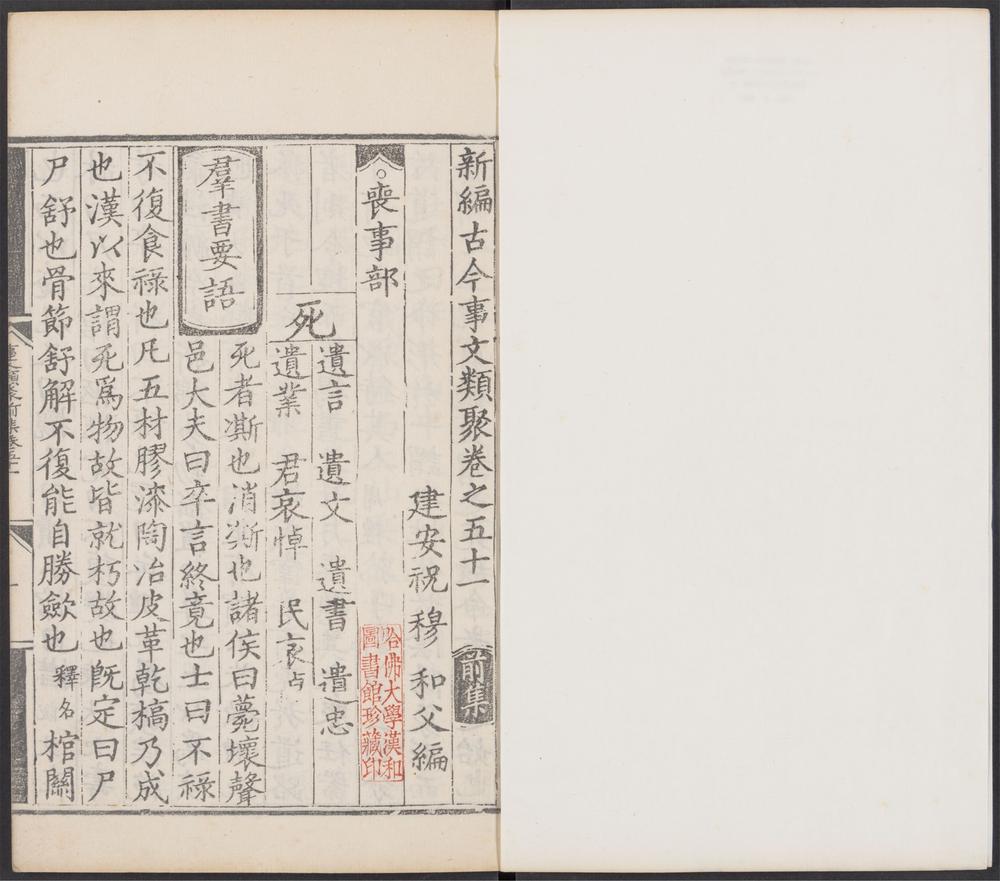 新編古今事文類聚卷之五十一 前集
建安祝 穆 和父編
哈佛大學漢和
圖書館珍藏印
喪事部
死
遺言 遺文 遺書 遺忠
遺業 君哀悼 民哀占
羣書要語
死者澌也消澌也諸侯曰薨壞聲
邑大夫曰卒言終竟也士曰不祿
不復食祿也凡五材膠漆陶冶皮革乾槁乃成
也漢以來謂死爲物故皆就朽故也旣定曰尸
尸舒也骨節舒解不復能自勝歛也釋名棺關